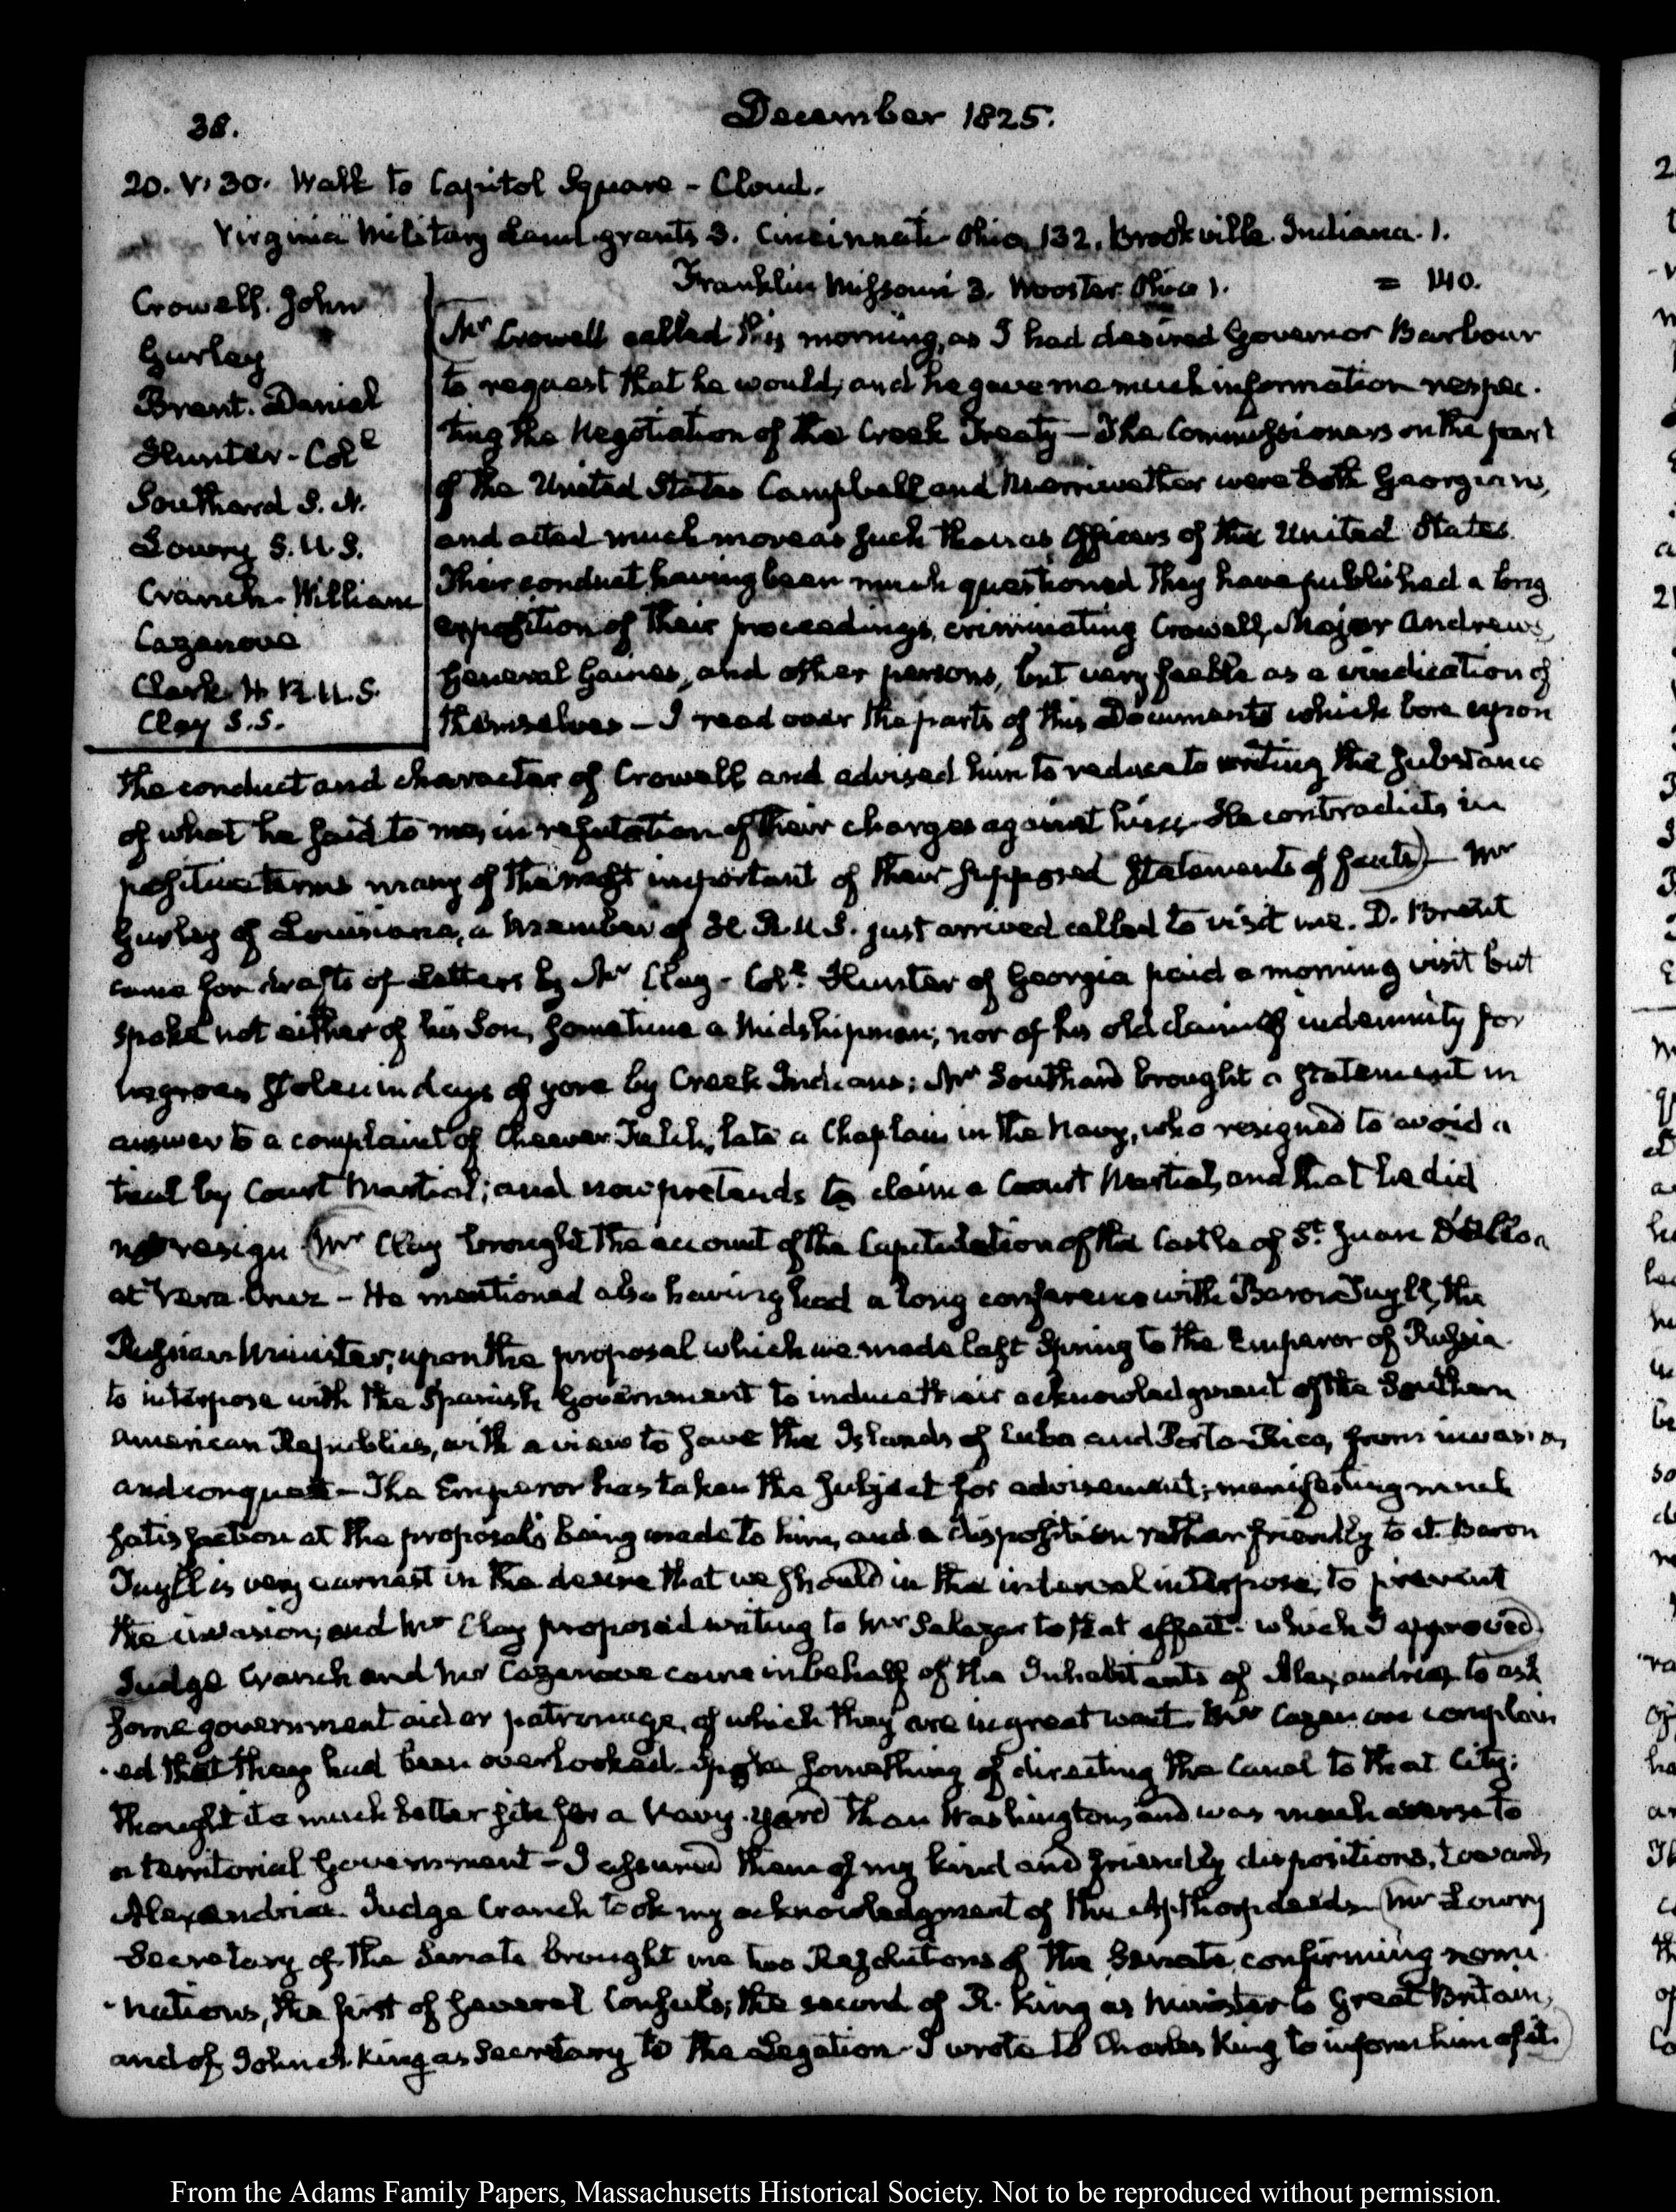 38.
December 1825.
20. V:30. Walk to Capitol Square - Cloud.
Virginia Military Land grants 3. Cincinnati Ohio 132. Brookville Indiana. 1.
Franklin Missouri 3. Wooster Ohio 1. = 140.
Crowell. John
Gurley
Brent. Daniel
Hunter - Col.e
Southard S. N.
Lowry S.U.S.
Cranch. William
Cazenove
Clark H R.U.S.
Clay S.S.
Mr Crowell called this morning, as I had desired Governor Barbour
to request that he would; and he gave me much information respec-
ting the Negotiation of the Creek Treaty - The Commissioners on the part
of the United States Campbell and Merriwether were both Georgians,
and acted much more as such than as Officers of the United States.
Their conduct having been much questioned they have published a long
exposition of their proceedings, criminating Crowell, Major Andrews,
General Gaines, and other persons, but very feeble as a vindication of
themselves - I read over the parts of this Documents which bore upon
the conduct and character of Crowell and advised him to reduce to writing the substance
of what he said to me, in refutation of their charges against him. He contradicts in
positive terms many of the most important of their supposed statements of facts) - Mr
Gurley of Louisiana, a member of H. R.U.S. just arrived called to visit me. D. Brent
came for drafts of Letters by Mr Clay - Col.e Hunter of Georgia paid a morning visit but
spoke not either of his Son, sometime a Midshipman; nor of his old claim of indemnity for
negroes stolen in days of yore by Creek Indians; Mr Southard brought a statement in
answer to a complaint of Cheever Felch, late a Chaplain in the Navy, who resigned to avoid a
trial by Court Martial; and now pretends to claim a Court Martial, and that he did
not resign (Mr Clay brought the account of the Capitulation of the Castle of St. Juan D'Ulloa
at Vera Cruz - He mentioned also having had a long conference with Baron Tuyll, the
Russian Minister, upon the proposal which we made last Spring to the Emperor of Russia
to interpose with the Spanish Government to induce their acknowledgment of the Southern
American Republics, with a view to save the Islands of Cuba and Porto-Rico, from invasion,
and conquest - The Emperor has taken the subject for advisement; manifesting much
satisfaction at the proposal's being made to him, and a disposition rather friendly to it. Baron
Tuyll is very earnest in the desire that we should in the interval interpose, to prevent
the invasion; and Mr Clay proposed writing to Mr Salazar to that effect. which I approved)
Judge Cranch and Mr Cazenove came in behalf of the Inhabitants of Alexandria, to ask
some government aid or patronage, of which they are in great want. Mr Cazenove complain
-ed that they had been overlooked. Spoke something of directing the Canal to that City;
thought it a much better site for a Navy-yard than Washington, and was much averse to
a territorial Government - I assured them of my kind and friendly dispositions, towards
Alexandria. Judge Cranch took my acknowledgment of the Apthorp deeds (Mr Lowry
Secretary of the Senate brought me two Resolutions of the Senate, confirming nomi-
-nations, the first of several Consuls; the second of R. King as Minister to Great Britain,
and of John A. King as Secretary to the Legation. I wrote to Charles King to inform him of it.)
From the Adams Family Papers, Massachusetts Historical Society. Not to be reproduced without permission.